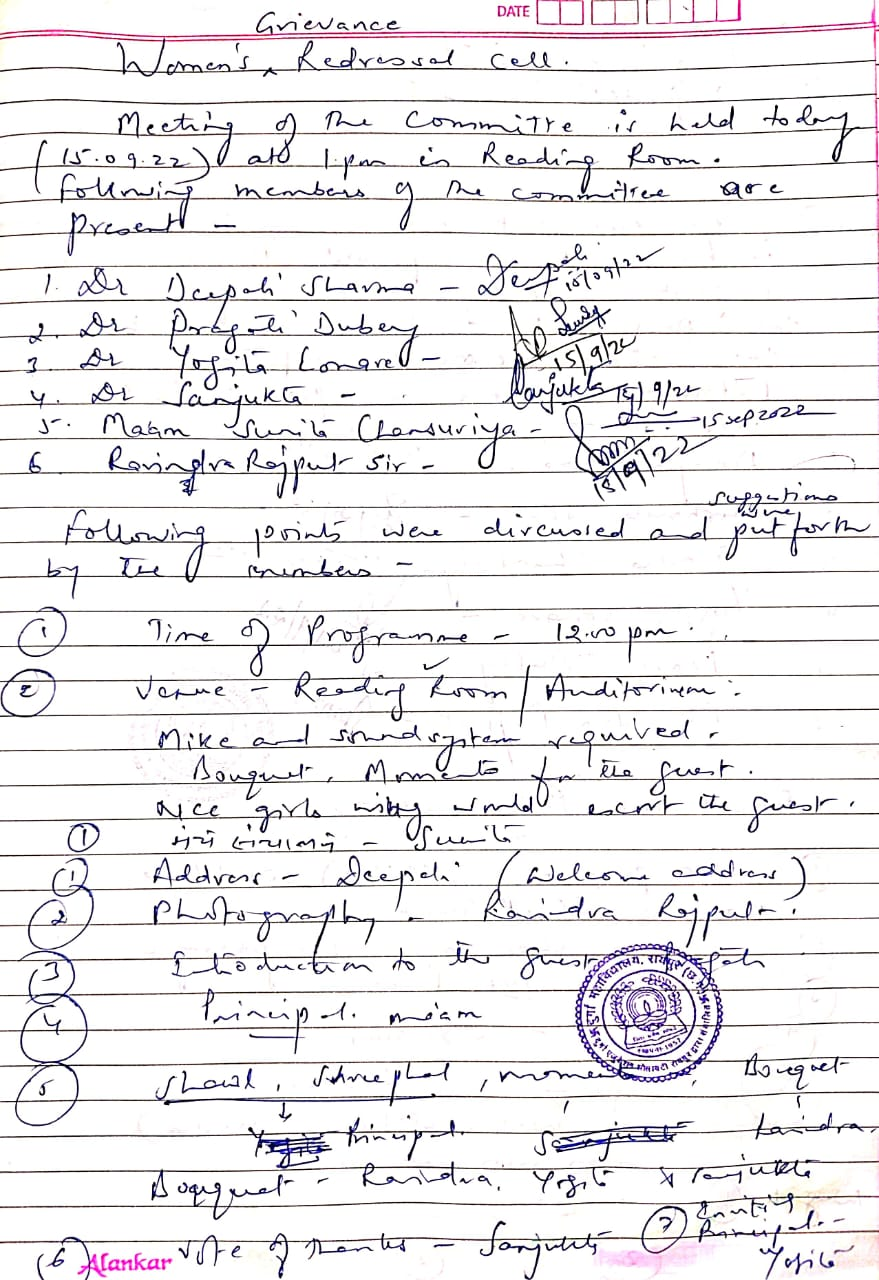 DATE
Grievance
Women's Redressal Cell.
Meeting of the Committee is held today
(15.09.22) at 1.pm in Reading Room.
following members of the committee are
present -
1. Dr Deepali Sharma - Deepali 15/09/22
2. Dr Pragati Dubey
3. Dr Yogita Lonare - 15/9/22
4. Dr Sanjukta - Sanjukta 15/9/22
5. Maam Sunita Chansuriya - 15 Sep 2022
6 Ravindra Rajput Sir - 15/09/22
suggestions
were
Following points were discussed and put forth
by the members -
① Time of Programme - 12.00 pm.
② Venue - Reading Room / Auditorium.
Mike and sound system required.
Bouquet, Momento for the guest.
Nce girls would escort the guest.
① मंच संचालन - Sunita
① Address - Deepali (Welcome address)
② Photography - Ravindra Rajput.
③ Introduction to the guest
④ Principal. maam
⑤ Shawl, Shreephal, moment, Bouquet
Principal. Ravindra.
Bouquet - Ravindra, Yogita & Sanjukta
⑦ Inviting
Principal -
Yogita
(6) Vote of thanks - Sanjukta
Alankar